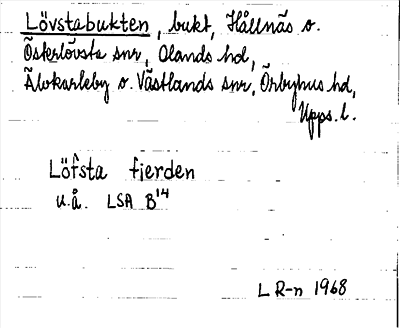 Lövstabukten, bukt, Hållnäs o.
Österlövsta snr, Olands hd,
Älvkarleby o. Västlands snr, Örbyhus hd,
Upps. l.
Löfsta fjerden
u.å. LSA B¹⁴
L R-n 1968